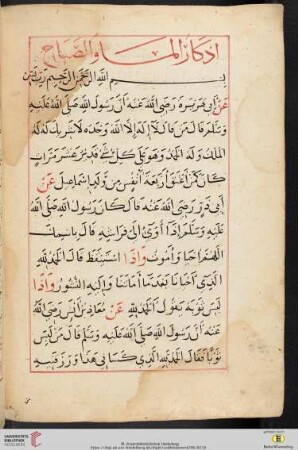 اذكار المساء والصباح
بسم الله الرحمن الرحيم
عن ابي هريرة رضي الله عنه ان رسول الله صلى الله عليه
وسلم قال من قال لا اله الا الله وحده لا شريك له له
الملك وله الحمد وهو على كل شئ قدير عشر مرات
كان كمن اعتق اربعة انفس من ولد اسماعيل عن
ابي ذر رضي الله عنه قال كان رسول الله صلى الله
عليه وسلم اذا اوى الى فراشه قال باسمك
اللهم احيا واموت واذا استيقظ قال الحمد لله
الذي احيانا بعد ما اماتنا واليه النشور واذا
لبس ثوبه يقول الحمد لله عن معاذ بن انس رضي الله
عنه ان رسول الله صلى الله عليه وسلم قال من لبس
ثوبا فقال الحمد لله الذي كساني هذا ورزقنيه